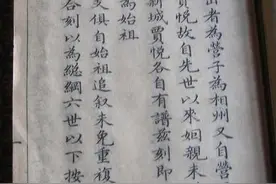 出者為營子為相州又自營
賈悦故自先世以來如親未
新城賈悦各自有譜兹刻即
為始祖
文俱自始祖追叙未免重複
合刻以為總綱六世以下按